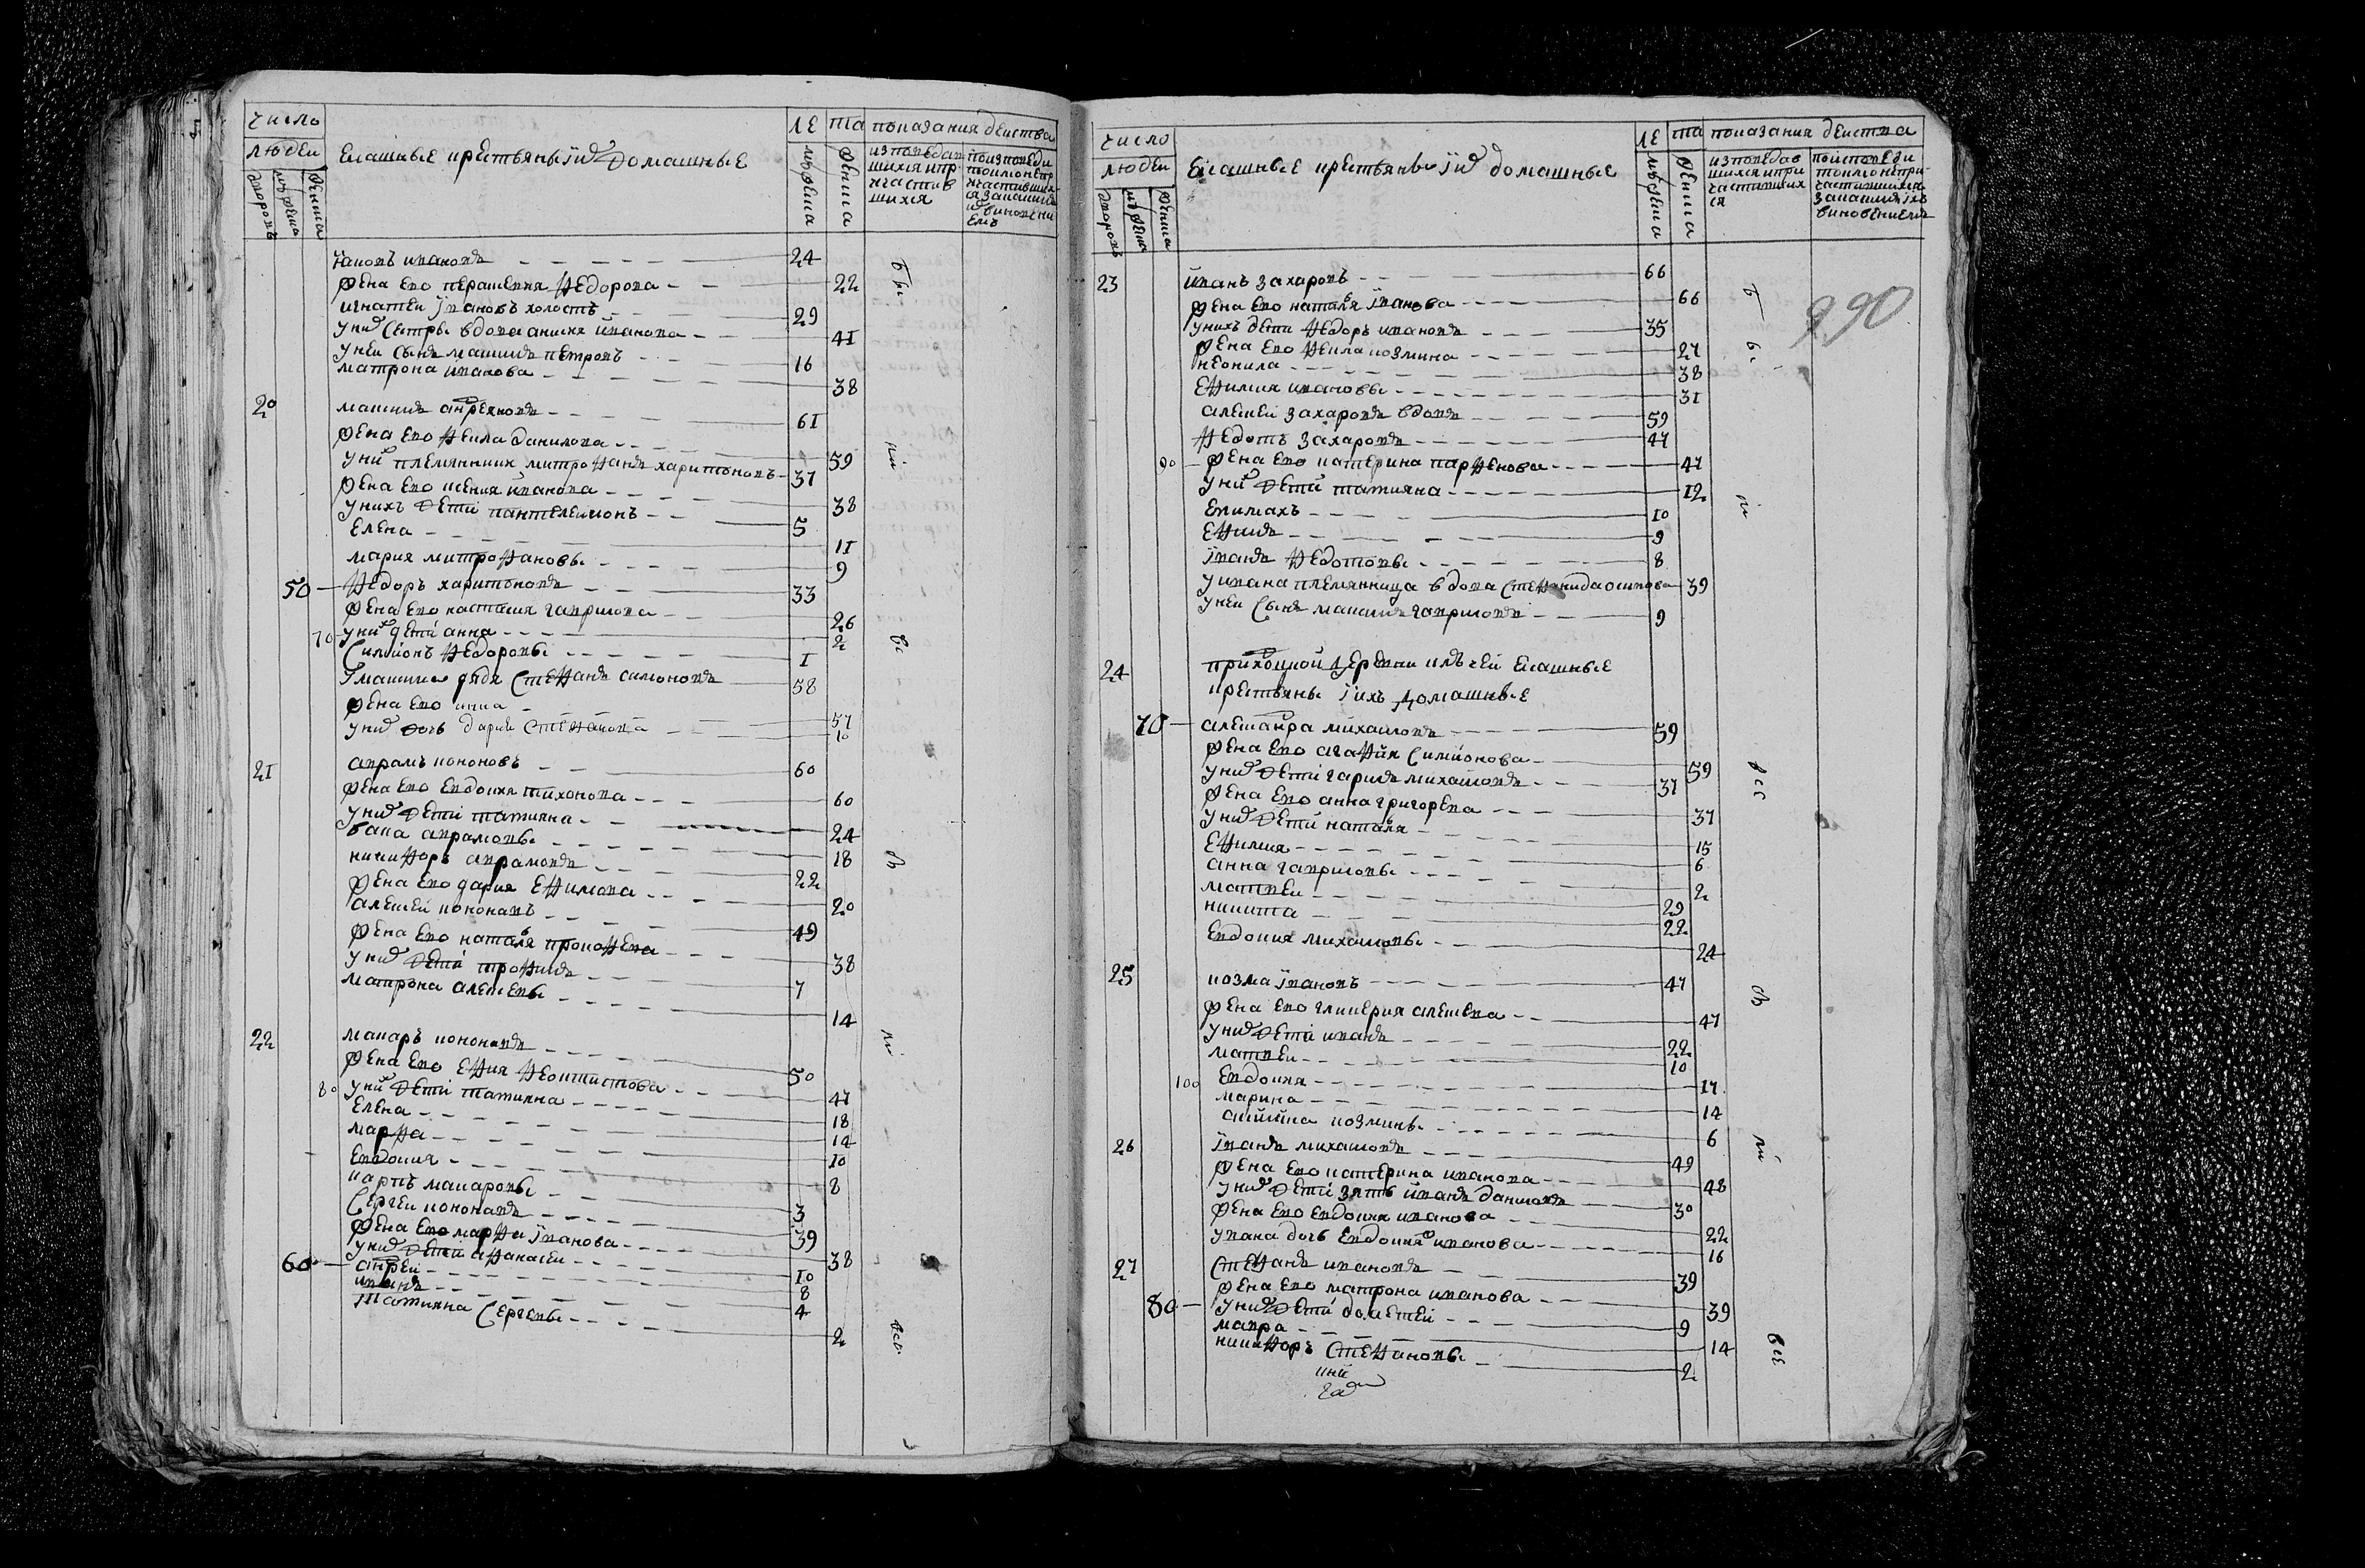 число
людеи
дворовъ
мужеска
женска
Ясашные крестьяны и их домашные
ле
та
мужеска
женска
показания действа
изповедав
шихся и при
частив
шихся
по изповеди
токмо не пр
ичастивших
ся за каким
их винослови
емъ
Яковъ ивановъ 24
жена ево перасковия Федорова 22
игнатеи Ивановъ холостъ 29
у них сестры вдова анисия иванова 41
у неи сынъ максимъ петровъ 16
матрона иванова 38
20 максимъ андреяновъ 61
жена ево Фекла данилова 59
у них племянник митрофанъ харитоновъ 37
жена ево ксения иванова 38
у нихъ дети пантелеимонъ 5
Елена 11
мария митрофановы 9
50 Федоръ харитоновъ 33
жена ево настасия гаврилова 26
70 у них дети анна 2
Симионъ Федоровы 1
У максима дядя Стефанъ симоновъ 58
жена ево анна 57
у них дочь дария Стефанова 10
21 аврамъ кононовъ 60
жена ево Евдокия тихонова 60
у них дети татияна 24
вава аврамовы 18
никифоръ аврамовъ 22
жена ево дария Ефимова 20
алексеи кононовъ 49
жена ево наталья прокофева 38
у них дети трофимъ 7
матрона алексевы 14
22 макаръ кононовъ 50
жена ево Ефия Феоктистова 47
80 у них дети татияна 18
Елена 14
марфа 10
Евдокия 8
карпъ макаровы 3
Сергеи кононовъ 39
жена ево марфа Иванова 38
у них дети афанасеи 10
60 андреи 8
иванъ 4
татияна Сергевы 2
число
людеи
дворовъ
мужеска
женска
Ясашные крестьяны и их домашные
ле
та
мужеска
женска
показания действа
изповедав
шихся и при
частивших
ся
по исповеди
токмо не при
частившихся
за каким их
виновениемъ
990
23 иванъ захаровъ 66
жена ево наталья Иванова 66
у нихъ дети Федоръ ивановъ 35
жена ево Фекла козмина 27
неонила 38
Ефимия ивановы 31
алексеи захаровъ вдовъ 59
Федотъ захаровъ 47
90 жена ево катерина парфенова 47
у них дети татияна 12
Епимахъ 10
Ефимъ 9
Иванъ Федотовы 8
у ивана племянница вдова Стефанида осипова 39
у неи сынъ максимъ гавриловъ 9
24 приходцкой деревни ключеи Ясашные
крестьяны и ихъ домашные
70 александра михаиловъ 59
жена ево агафия Симионова 59
у них дети гарилъ михаиловъ 37
жена ево анна григорева 37
у них дети наталя 15
Ефимия 6
анна гавриловы 2
матвеи 29
никита 22
Евдокия михаиловы 24
25 козма Ивановъ 47
жена ево гликерия алексева 47
у них дети иванъ 22
матвеи 10
100 Евдокия 17
марина 14
акилина козмины 6
26 Иванъ михаиловъ 49
жена ево катерина иванова 48
у них дети зять иванъ даниловъ 30
жена ево евдокия иванова 22
у ивана дочь Евдокия иванова 16
27 Стефанъ ивановъ 39
жена ево матрона иванова 39
80 у них дети дометеи 9
мавра 14
никифоръ Стефановы 2